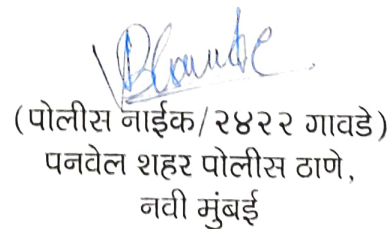 (पोलीस नाईक/२४२२ गावडे)
पनवेल शहर पोलीस ठाणे,
नवी मुंबई